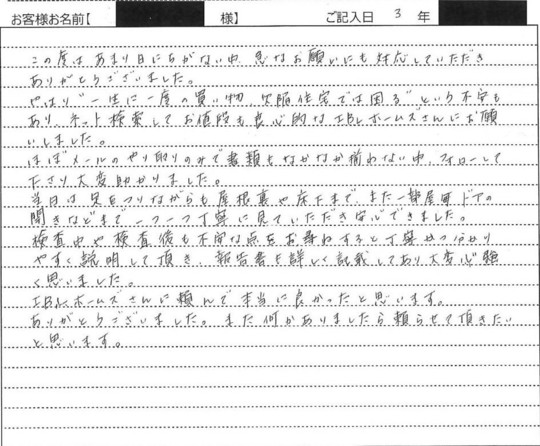 お客様お名前【 様】 ご記入日 3 年
この度はあまり日にちがない中、急なお願いにも対応していただき
ありがとうございました。
やはり"一生に一度の買い物、欠陥住宅では困る"という不安も
あり、ネット検索してお値段も良心的なIBLホームズさんにお願
いしました。
ほぼメールのやり取りのみで書類もなかなか揃わない中、フォローして
下さり大変助かりました。
当日は をつりながらも屋根裏や床下まで、また一部屋毎ドアの
開きなどまで一つ一つ丁寧に見ていただき安心できました。
検査中や検査後も不安な点をお尋ねすると丁寧かつ分かり
やすく説明して頂き、報告書も詳しく記載してあり大変心強
く思いました。
IBLホームズさんに頼んで本当に良かったと思います。
ありがとうございました。また何かありましたら頼らせて頂きたい
と思います。